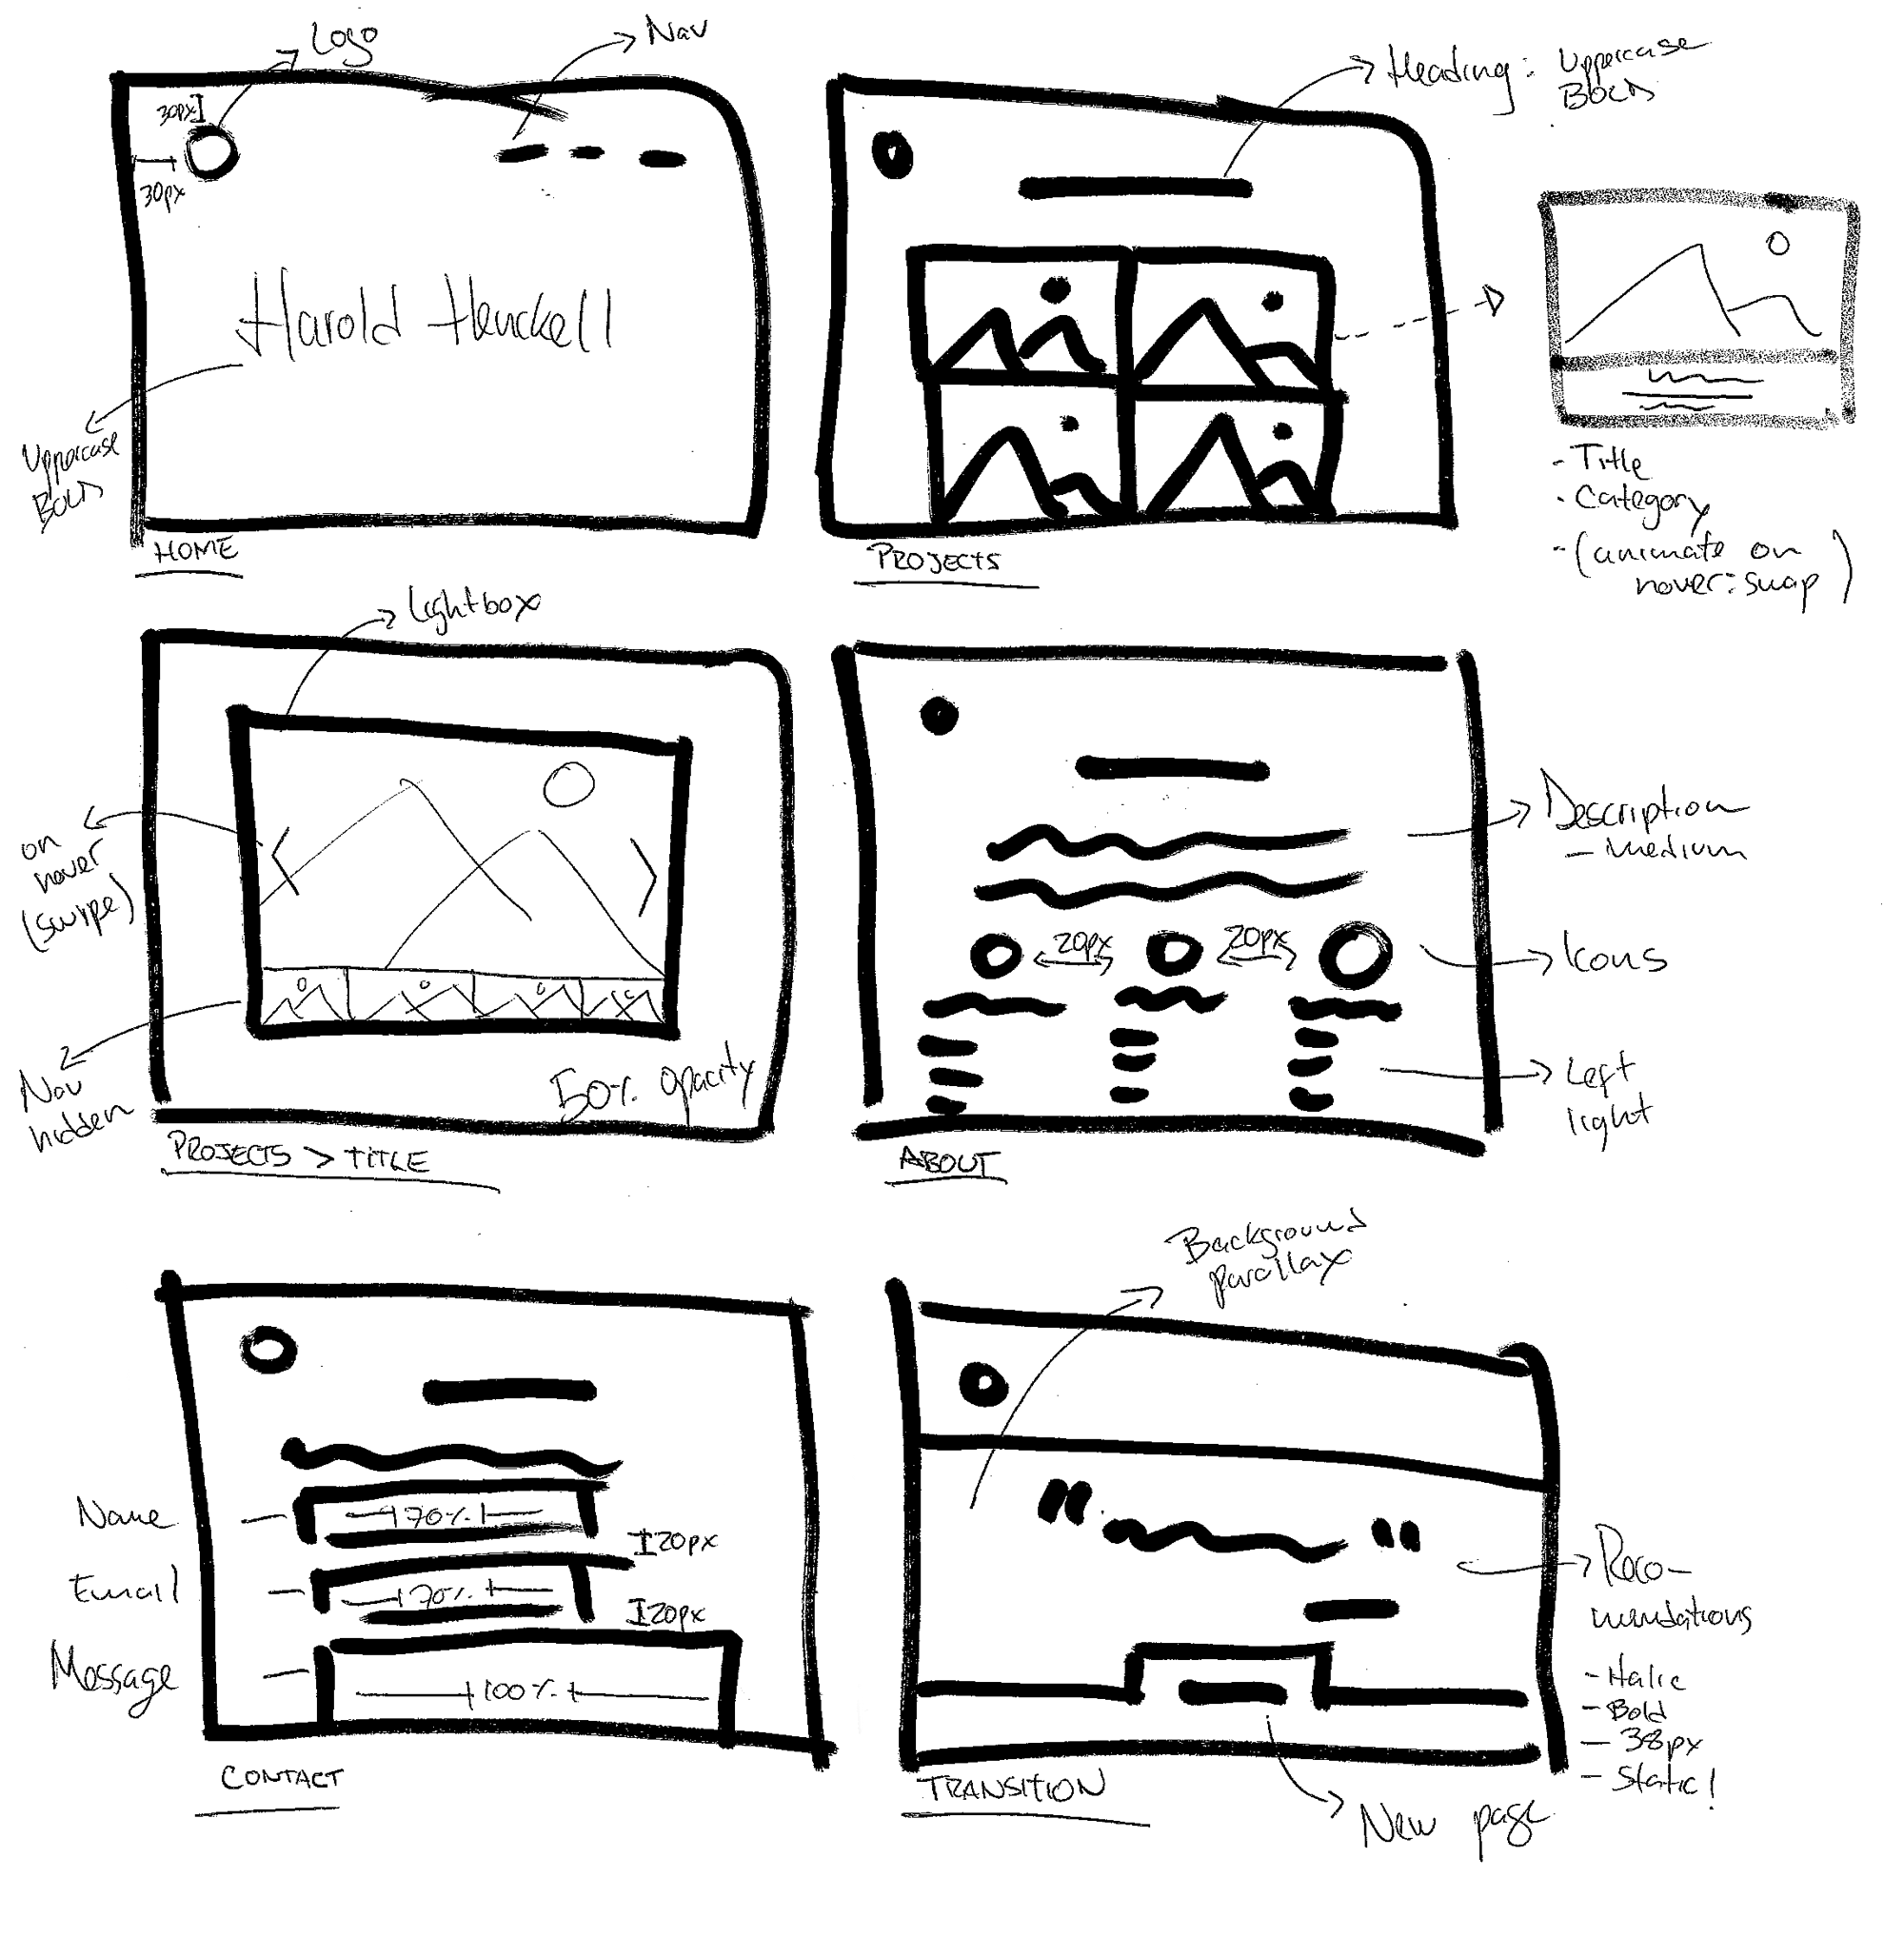 Logo
Nav
30px
30px
Harold Henckell
Uppercase
BOLD
HOME
Heading: Uppercase
BOLD
- Title
- Category
- (animate on
hover: swap)
PROJECTS
Lightbox
on
hover
(swipe)
Nav
hidden
50% opacity
PROJECTS > TITLE
Description
- Medium
20px
20px
Icons
Left
light
ABOUT
Name
70%
20px
Email
70%
20px
Message
100%
CONTACT
Background
parallax
" "
Reco-
mmdations
- Italic
- Bold
- 38px
- Static!
New page
TRANSITION